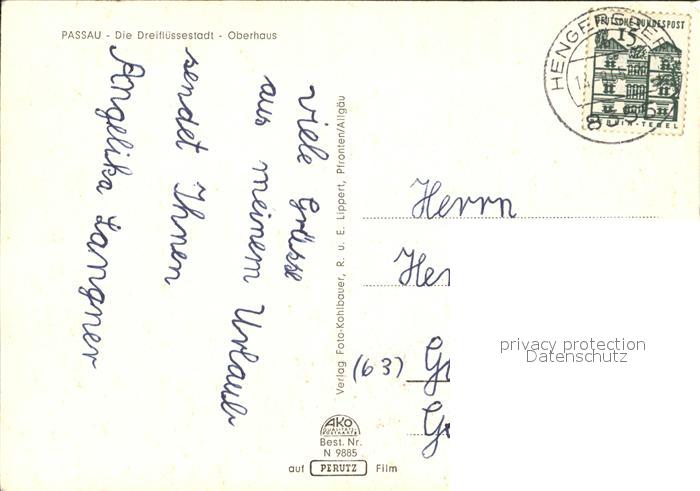 PASSAU - Die Dreiflüssestadt - Oberhaus
Viele Grüsse
aus meinem Urlaub
sendet Ihnen
Angelika Langner
Verlag Foto-Kohlbauer, R. u. E. Lippert, Pfronten/Allgäu
DEUTSCHE BUNDESPOST
15
Herrn
He
(63) G
G
privacy protection
Datenschutz
AKO
QUALITÄTS-
POSTKARTE
Best. Nr.
N 9885
auf PERUTZ Film